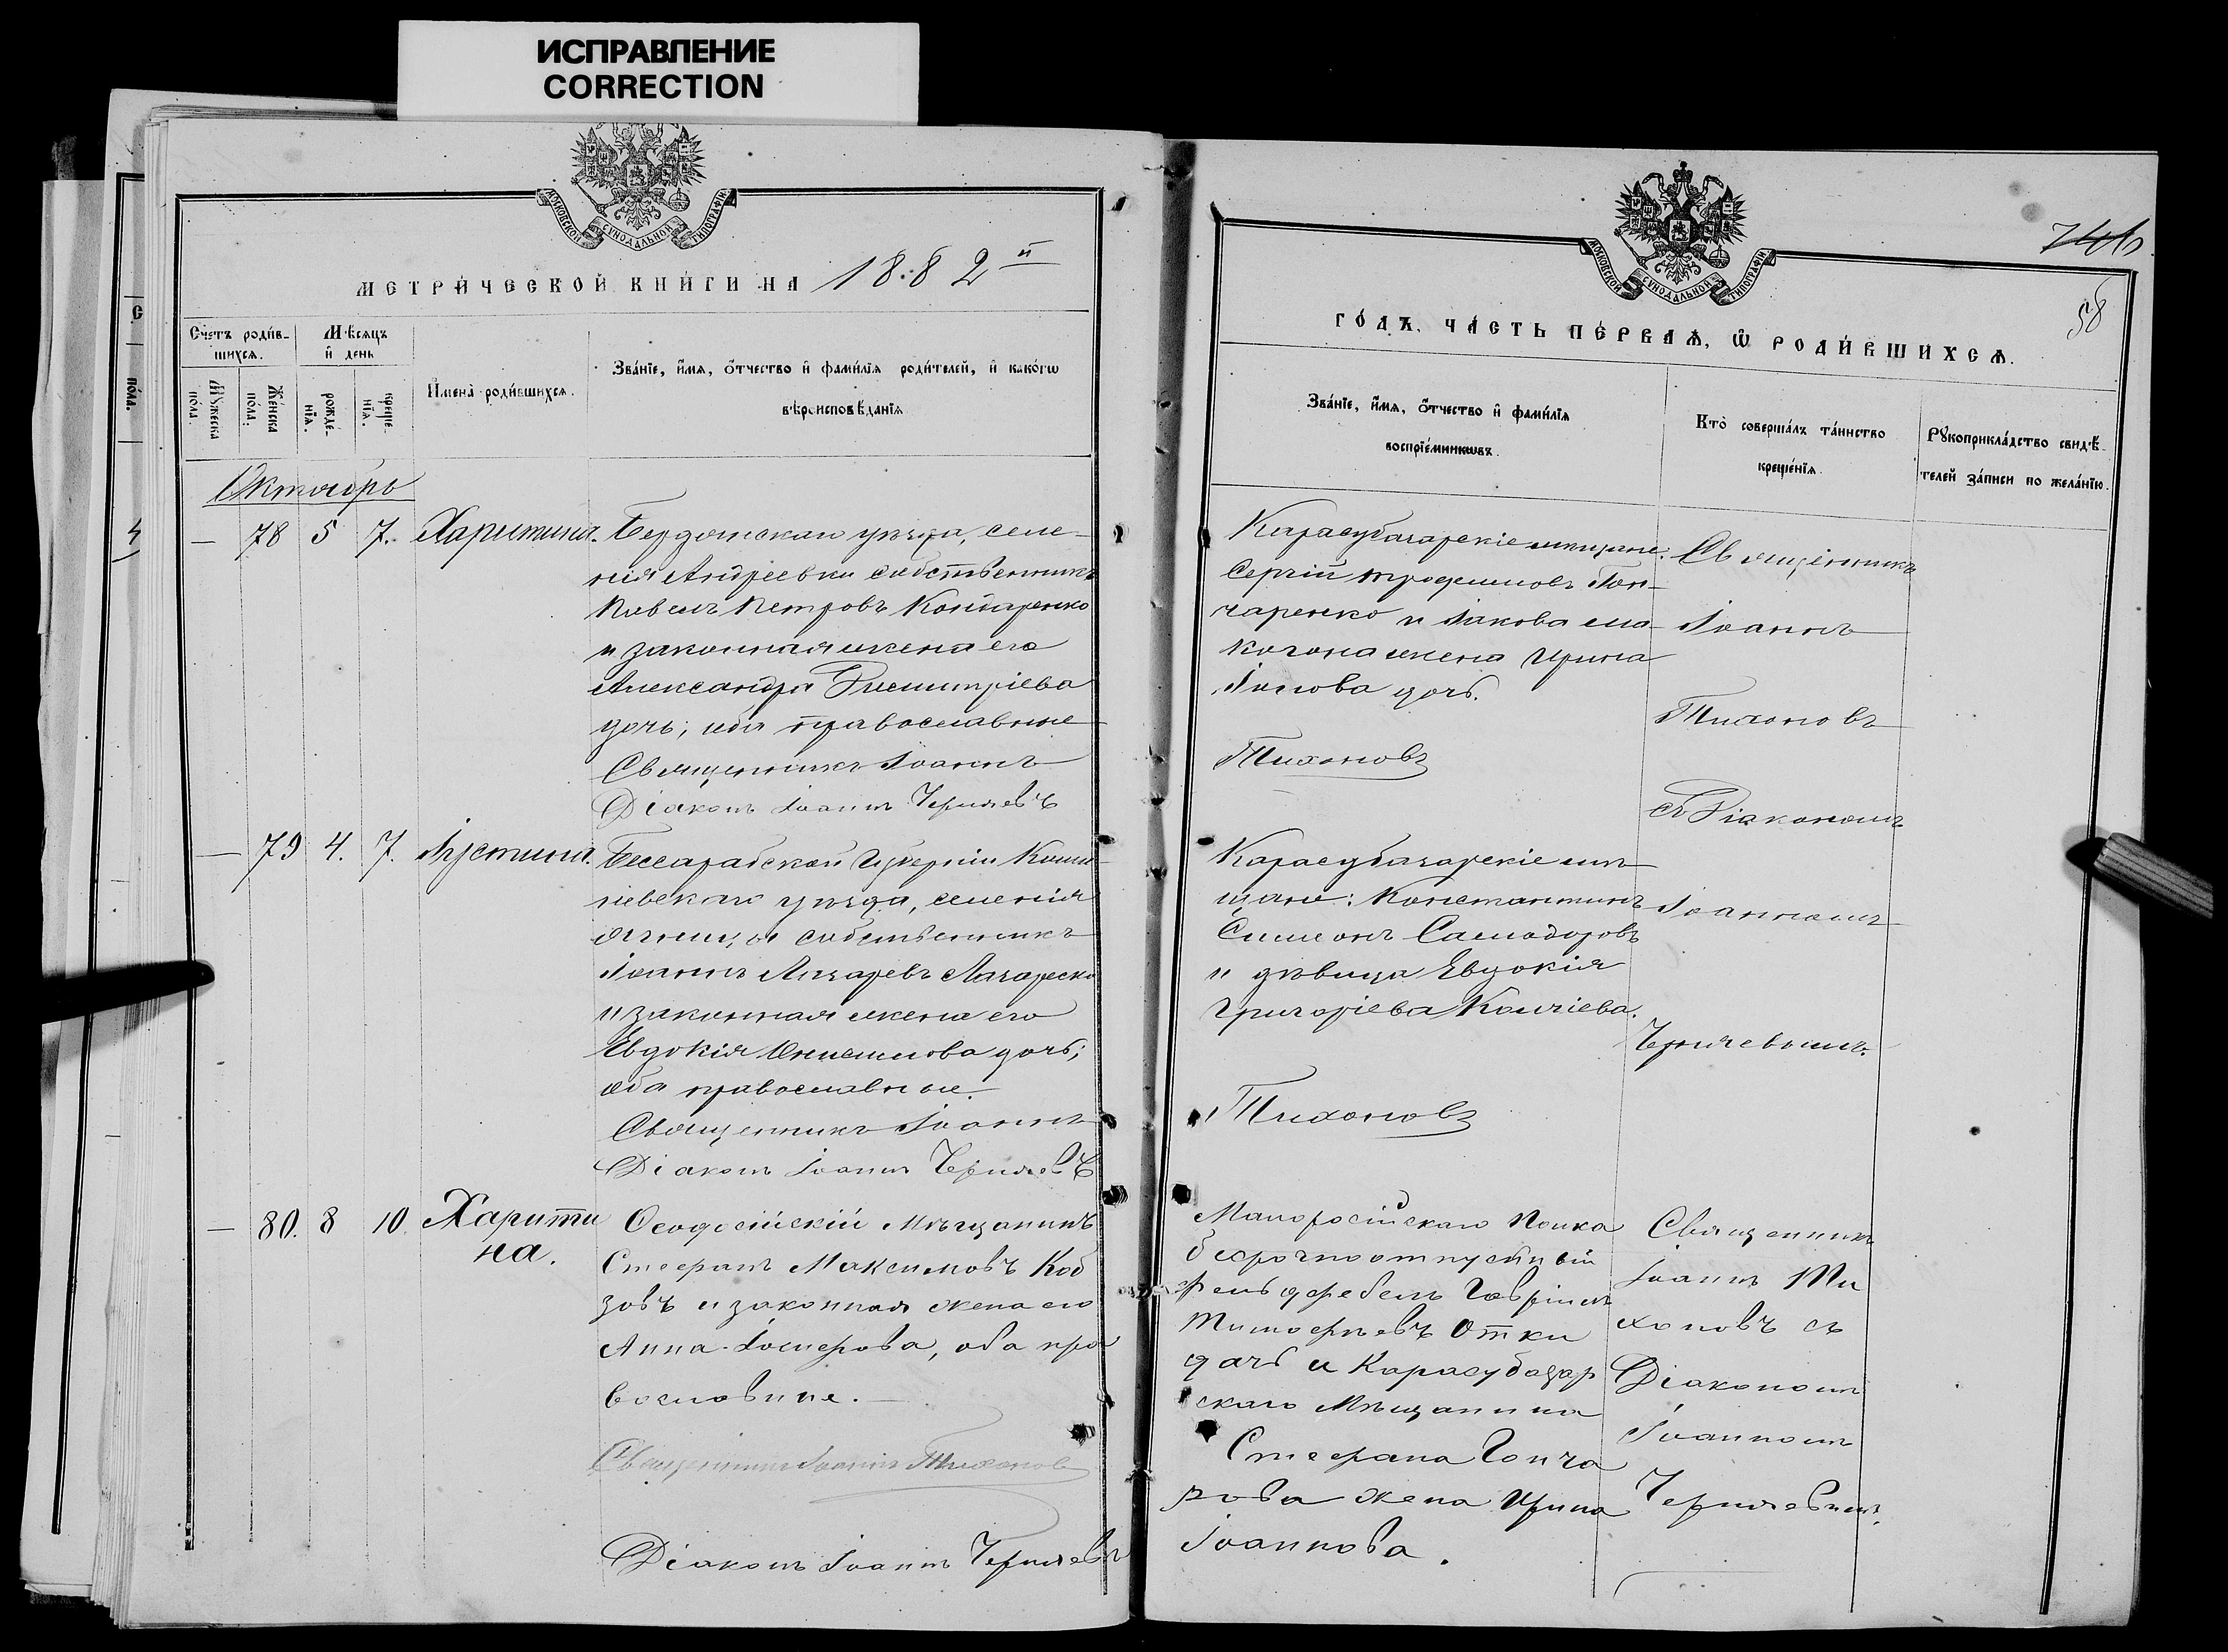 ИСПРАВЛЕНИЕ
CORRECTION
МОСКОВСКОЙ СУНОДАЛЬНОЙ ТИПОГРАФІИ
МЕТРИЧЕСКОЙ КНИГИ НА 1882й
Счетъ родив-
шихся.
Мѣсяцъ
и день
Мужеска
пола.
Женска
пола.
рожде-
нія.
креще-
нія.
Имена родившихся.
Званіе, имя, отчество и фамилія родителей, и какогω
вѣроисповѣданія
Октябрь
— 78 5 7. Харитина. Бердянскаго уѣзда, селе-
нія Андреевки собственникъ
Павелъ Петровъ Кондаренко
и законная жена его
Александра Димитріева
дочь; оба православные
Священникъ Іоаннъ
Діаконъ Іоаннъ Черняевъ
— 79 4. 7. Іустина. Бессарабской Губерніи Киши-
невскаго уѣзда, селенія
собственникъ
Іоаннъ Лазаревъ Лазареско
и законная жена его
Евдокія дочь;
оба православные.
Священникъ Іоаннъ
Діаконъ Іоаннъ Черняевъ
— 80. 8 10. Харити
на.
Ѳеодосійскій Мѣщанинъ
Стефанъ Максимовъ Коб
зовъ и законная жена его
Анна , оба пра
вославные.
Священникъ Іоаннъ Тихоновъ
Діаконъ Іоаннъ Черняевъ
МОСКОВСКОЙ СУНОДАЛЬНОЙ ТИПОГРАФІИ
58
ГОДЪ, ЧАСТЬ ПЕРВАЯ, Ѡ РОДИВШИХСЯ.
Званіе, имя, отчество и фамилія
воспріемниковъ.
Кто совершалъ таинство
крещенія.
Рукоприкладство свидѣ-
телей записи по желанію.
Карасубазарскіе мѣщане:
Сергій Трофимовъ Гон-
чаренко и Іакова Ма
когона жена Ирина
дочь.
Тихоновъ
Священникъ
Іоаннъ
Тихоновъ
съ Діакономъ
Іоанномъ
Черняевымъ.
Карасубазарскіе мѣ
щане: Константинъ
Самодоровъ
и дѣвица Евдокія
Григоріева
Тихоновъ
Малоросійскаго Полка
безсрочноотпускный
фельдфебель Гавріилъ
Тимофѣевъ Отки
дачъ и Карасубазар
скаго Мѣщанина
Стефана Гонча
рова жена Ирина
Іоаннова.
Священникъ
Іоаннъ Ти
хоновъ съ
Діакономъ
Іоанномъ
Черняевымъ.